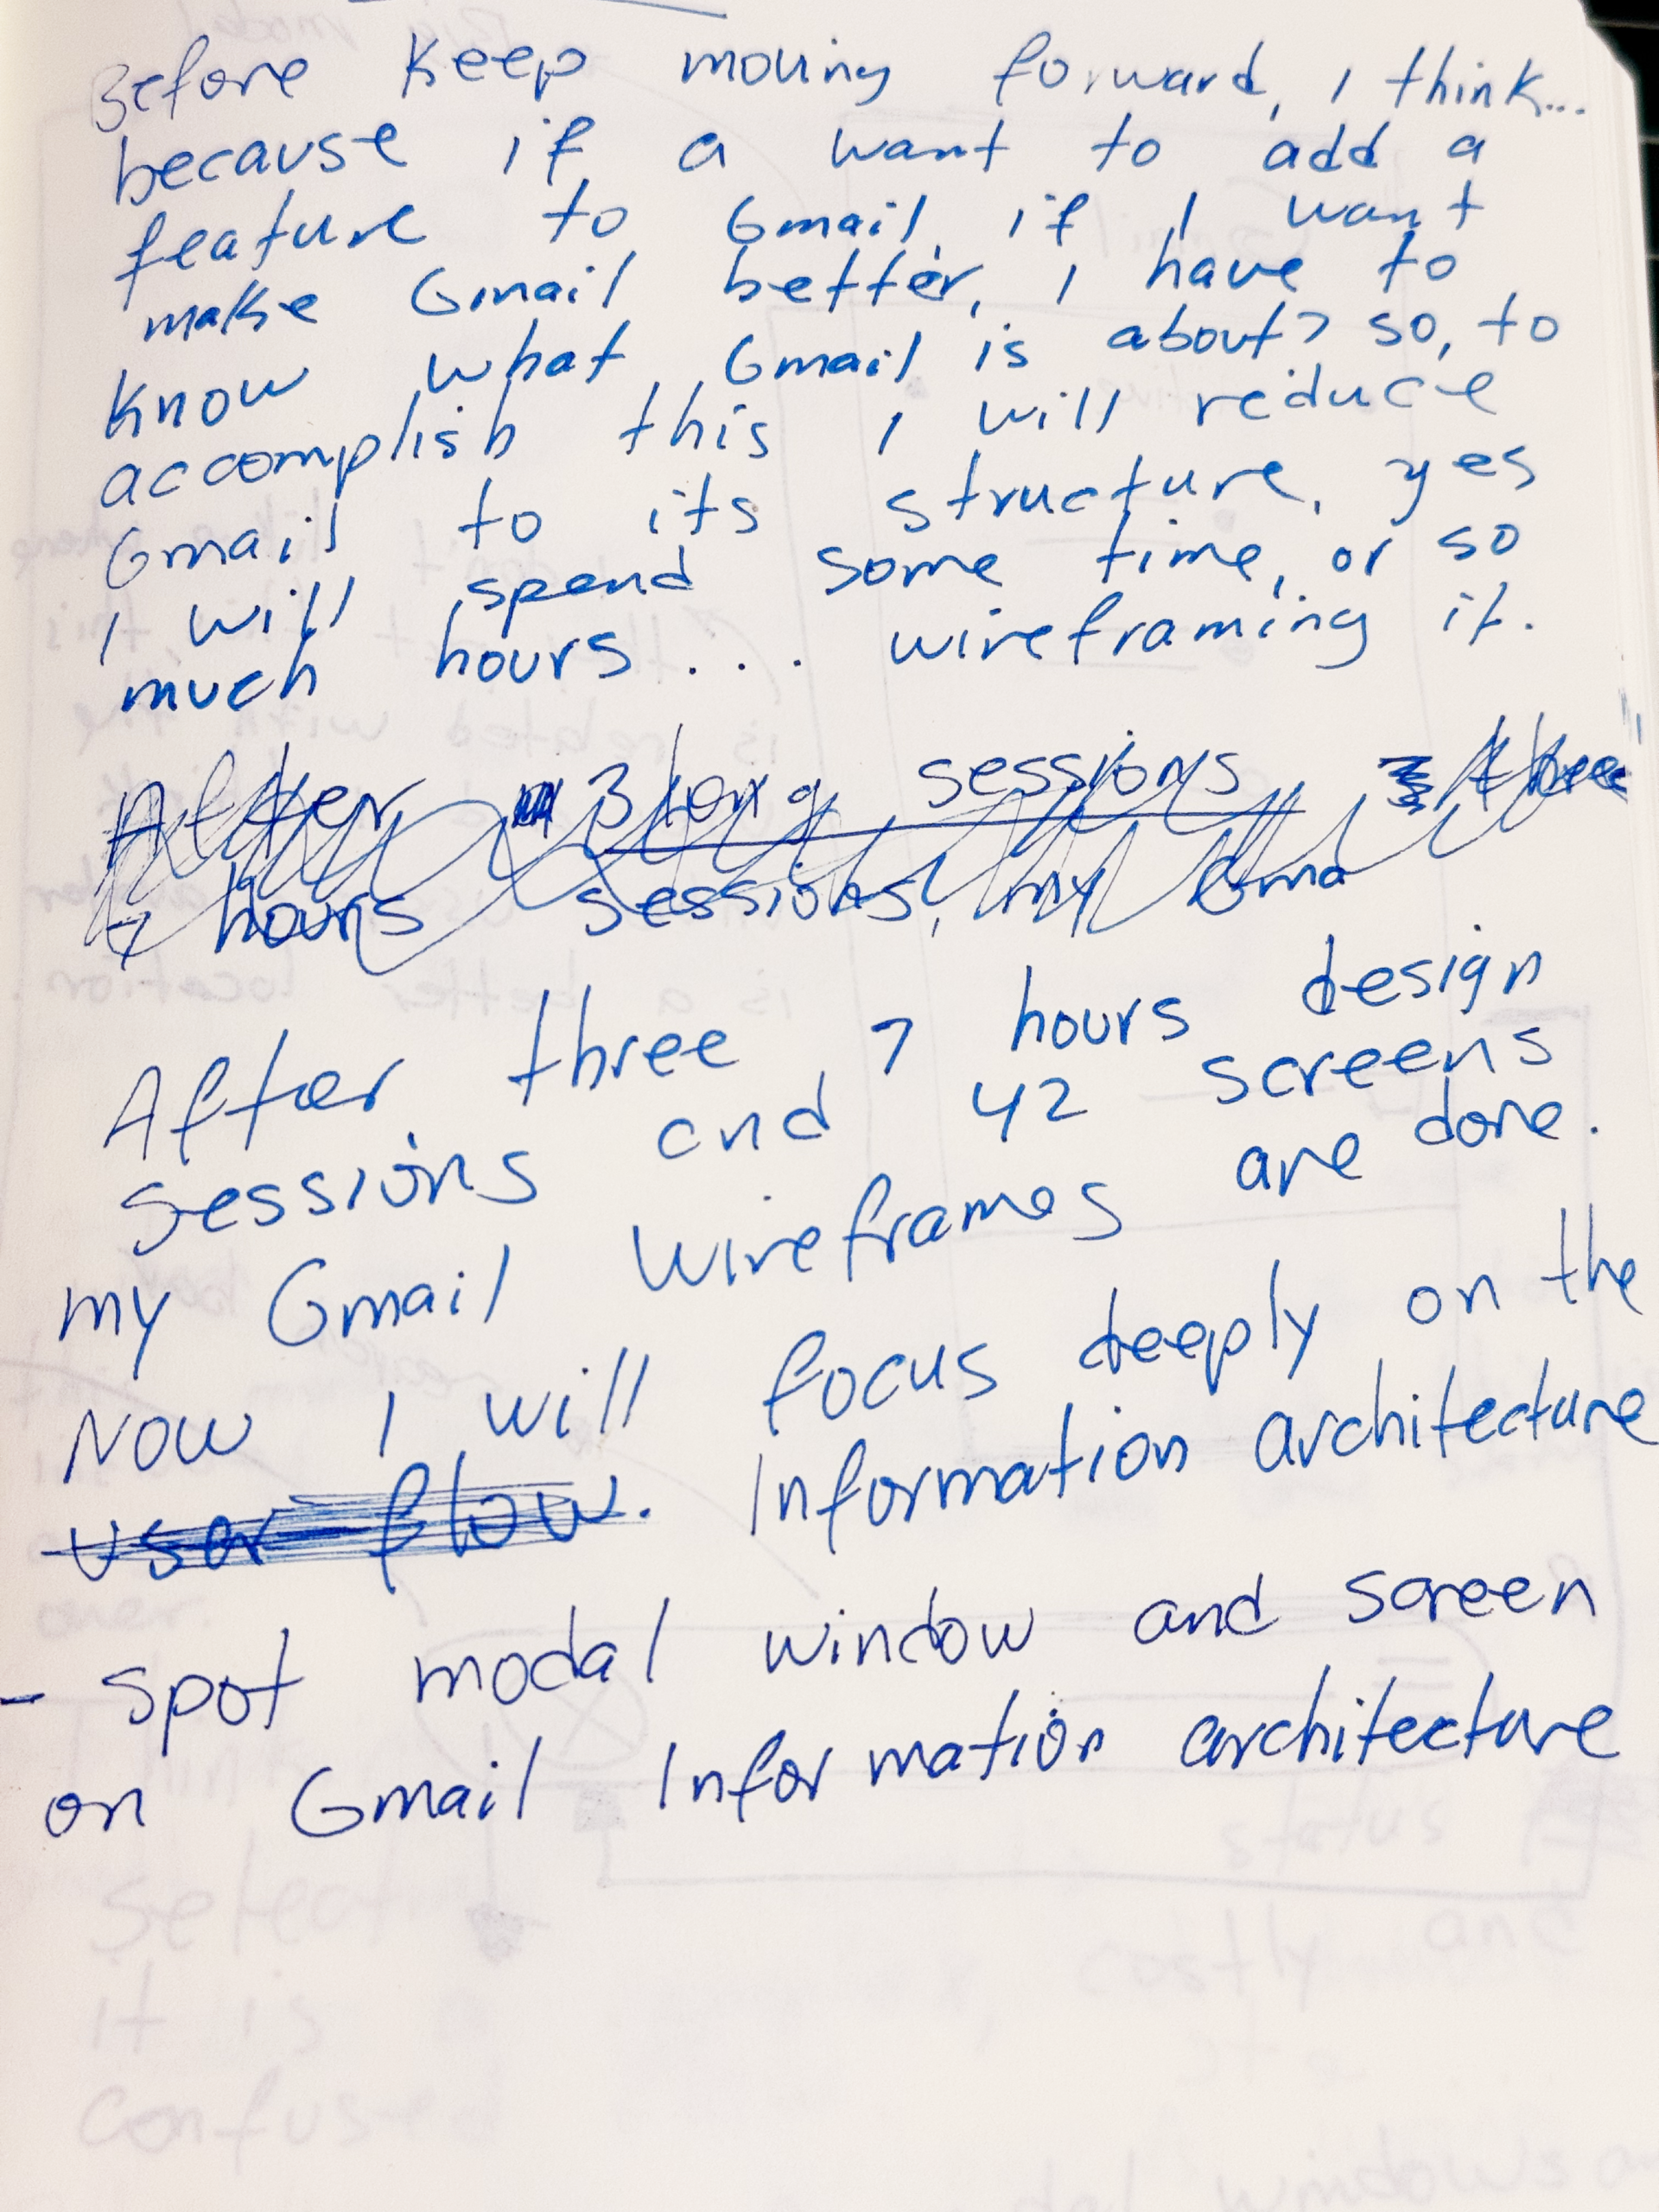 Before keep moving forward, I think...
because if a want to add a
feature to Gmail, if I want
make Gmail better, I have to
know what Gmail is about? so, to
accomplish this I will reduce
Gmail to its structure, yes
I will spend some time, or so
much hours... wireframing it.
After 3 long sessions three
7 hours sessions, my Gma
After three, 7 hours design
sessions and 42 screens
my Gmail wireframes are done.
Now I will focus deeply on the
user flow. Information architecture
- spot modal window and screen
on Gmail Information architecture